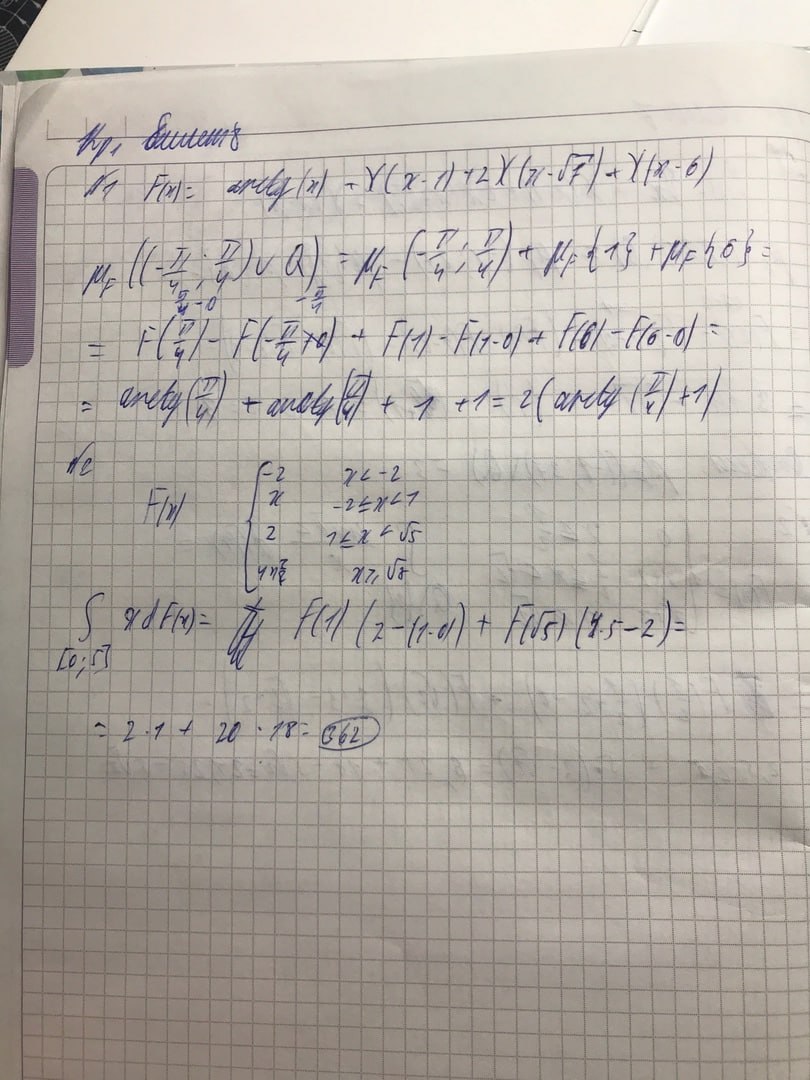 Кр, Билет 8
№1 F(x) = arctg(x) + χ(x-1) + 2χ(x-√7) + χ(x-6)
μF((-π/4; π/4) ∪ Q) = μF(-π/4; π/4) + μF{1} + μF{6} =
π/4-0 -π/4
= F(π/4) - F(-π/4+0) + F(1) - F(1-0) + F(6) - F(6-0) =
= arctg(π/4) + arctg(π/4) + 1 + 1 = 2(arctg(π/4)+1)
№2
F(x) { -2 x < -2
x -2 ≤ x < 1
2 1 ≤ x < √5
x ≥ √
∫[0;5] x dF(x) = F(1)(2-(1-0)) + F(√5)(4·5-2) =
= 2·1 + 20·18 = 362